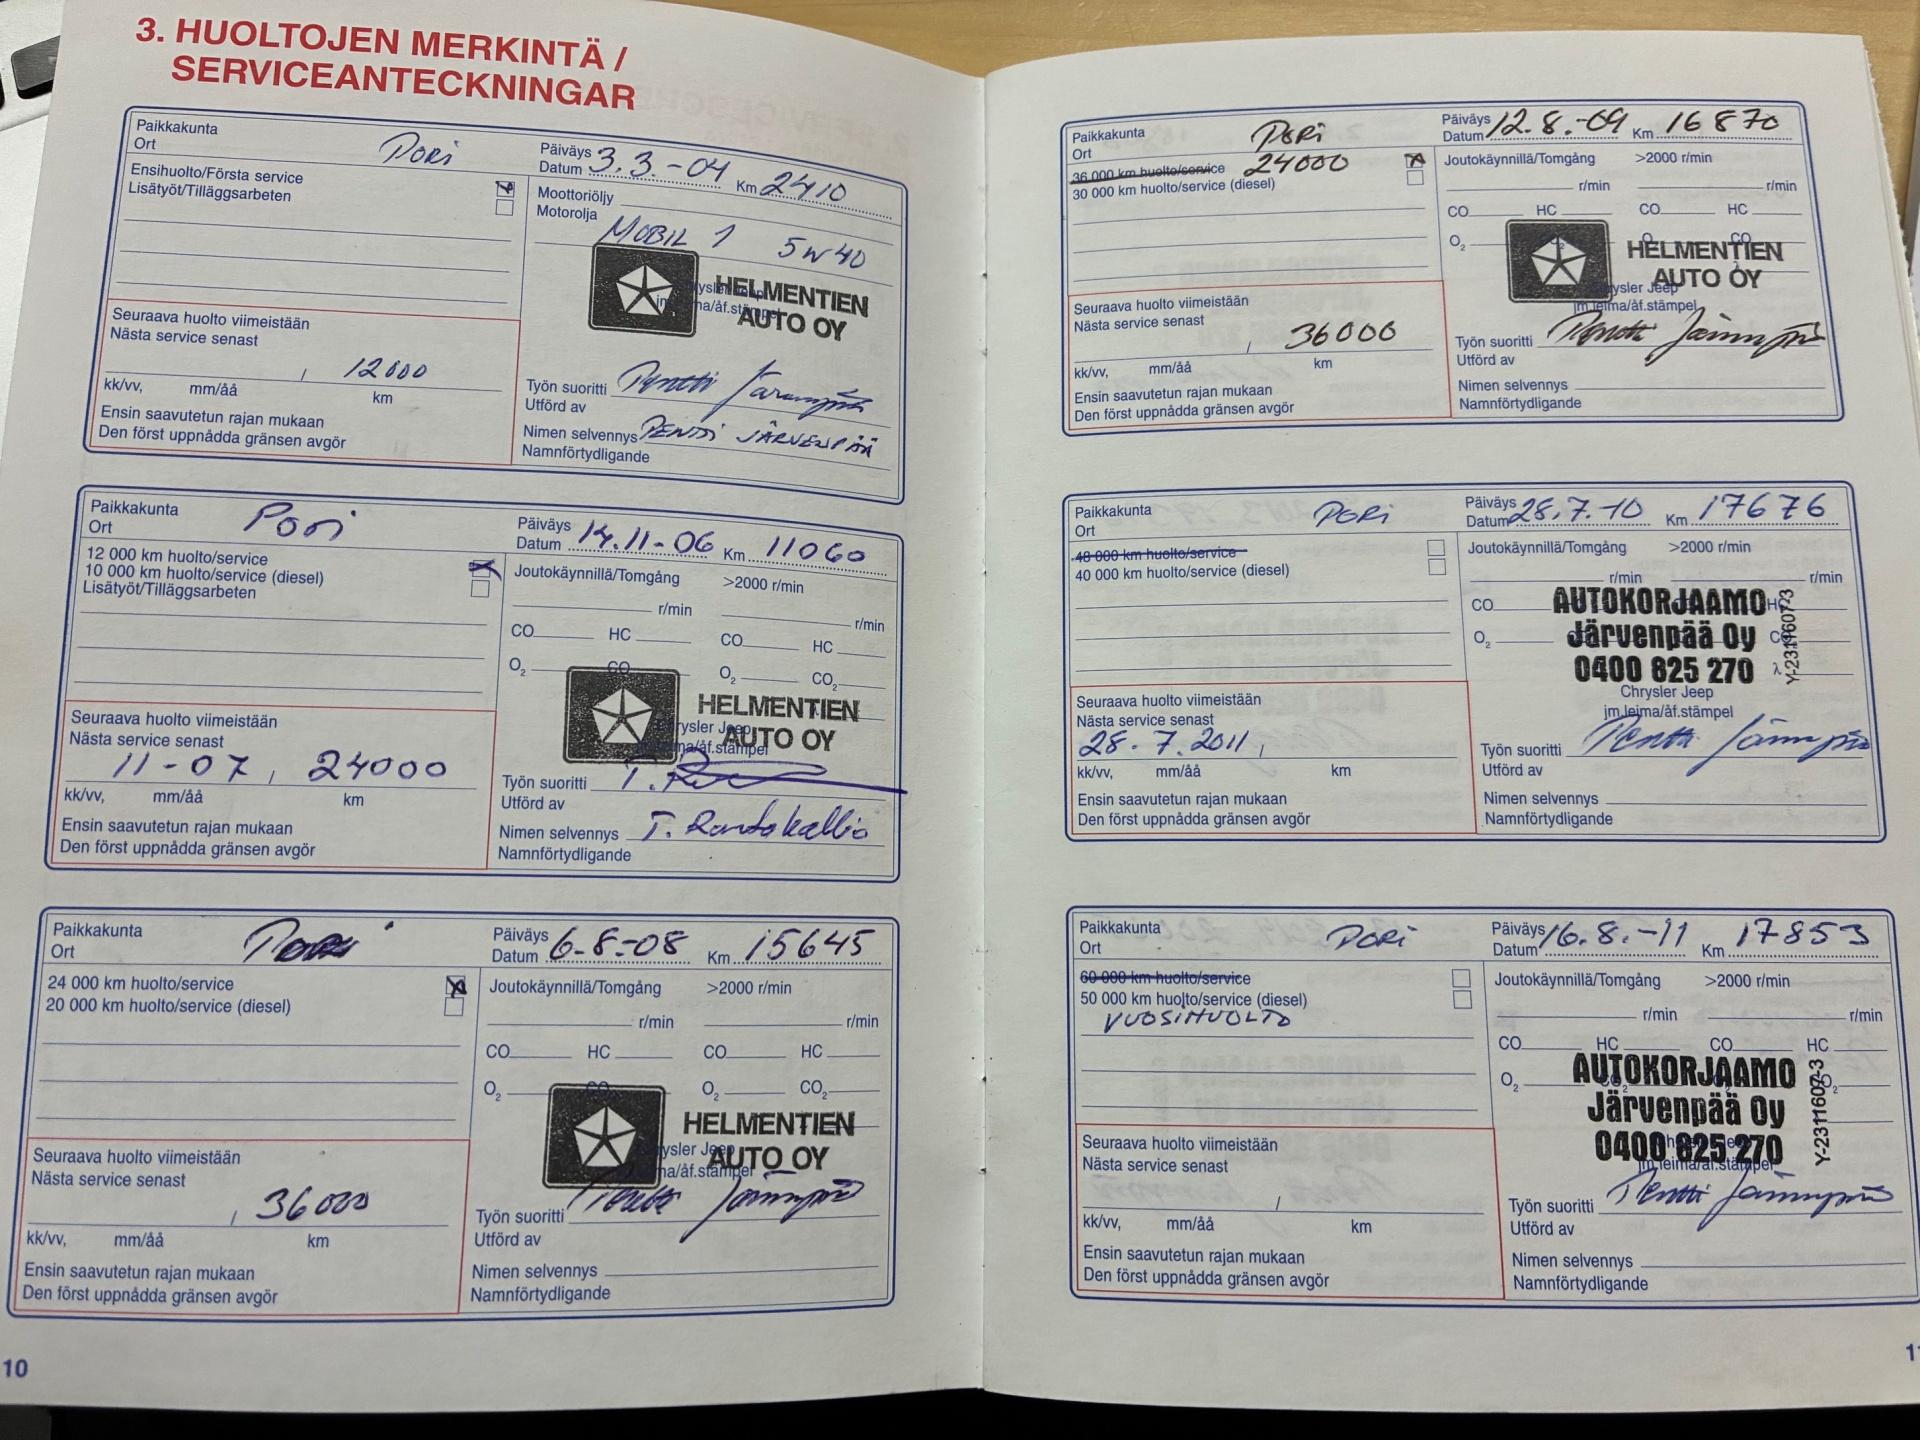 3. HUOLTOJEN MERKINTÄ /
SERVICEANTECKNINGAR
Paikkakunta
Ort
PORI
Päiväys
Datum 3.3.-04 Km 2410
Ensihuolto/Första service
Lisätyöt/Tilläggsarbeten
Moottoriöljy
Motorolja
MOBIL 1 5W40
HELMENTIEN
AUTO OY
Seuraava huolto viimeistään
Nästa service senast
, 12000
kk/vv, mm/åå km
Ensin saavutetun rajan mukaan
Den först uppnådda gränsen avgör
Työn suoritti Pentti Järvenpää
Utförd av
Nimen selvennys PENTTI JÄRVENPÄÄ
Namnförtydligande
Paikkakunta
Ort
Pori
Päiväys
Datum 14.11-06 Km 11060
12 000 km huolto/service
10 000 km huolto/service (diesel)
Lisätyöt/Tilläggsarbeten
Joutokäynnillä/Tomgång >2000 r/min
r/min r/min
CO HC CO HC
O2 CO O2 CO2
HELMENTIEN
AUTO OY
Chrysler Jeep
Seuraava huolto viimeistään
Nästa service senast
11-07, 24000
kk/vv, mm/åå km
Ensin saavutetun rajan mukaan
Den först uppnådda gränsen avgör
Työn suoritti
Utförd av
Nimen selvennys T. Rantakallio
Namnförtydligande
Paikkakunta
Ort
Pori
Päiväys
Datum 6.8.-08 Km 15645
24 000 km huolto/service
20 000 km huolto/service (diesel)
Joutokäynnillä/Tomgång >2000 r/min
r/min r/min
CO HC CO HC
O2 CO2 O2 CO2
HELMENTIEN
AUTO OY
Seuraava huolto viimeistään
Nästa service senast
, 36000
kk/vv, mm/åå km
Ensin saavutetun rajan mukaan
Den först uppnådda gränsen avgör
Työn suoritti Pentti Järvenpää
Utförd av
Nimen selvennys
Namnförtydligande
10
Paikkakunta
Ort
PORI
Päiväys
Datum 12.8.-09 Km 16870
36 000 km huolto/service 24000
30 000 km huolto/service (diesel)
Joutokäynnillä/Tomgång >2000 r/min
r/min r/min
CO HC CO HC
O2 O2 O CO
HELMENTIEN
AUTO OY
Chrysler Jeep
jm.leima/åf.stämpel
Seuraava huolto viimeistään
Nästa service senast
, 36000
kk/vv, mm/åå km
Ensin saavutetun rajan mukaan
Den först uppnådda gränsen avgör
Työn suoritti Pentti Järvenpää
Utförd av
Nimen selvennys
Namnförtydligande
Paikkakunta
Ort
PORI
Päiväys
Datum 28.7.-10 Km 17676
48 000 km huolto/service
40 000 km huolto/service (diesel)
Joutokäynnillä/Tomgång >2000 r/min
r/min r/min
CO HC
O2 λ
AUTOKORJAAMO
Järvenpää Oy
0400 825 270
Y-2311607-3
Chrysler Jeep
jm.leima/åf.stämpel
Seuraava huolto viimeistään
Nästa service senast
28.7.2011,
kk/vv, mm/åå km
Ensin saavutetun rajan mukaan
Den först uppnådda gränsen avgör
Työn suoritti Pentti Järvenpää
Utförd av
Nimen selvennys
Namnförtydligande
Paikkakunta
Ort
PORI
Päiväys
Datum 16.8.-11 Km 17853
60 000 km huolto/service
50 000 km huolto/service (diesel)
VUOSIHUOLTO
Joutokäynnillä/Tomgång >2000 r/min
r/min r/min
CO HC CO HC
O2
AUTOKORJAAMO
Järvenpää Oy
0400 825 270
Y-2311607-3
jm.leima/åf.stämpel
Seuraava huolto viimeistään
Nästa service senast
kk/vv, mm/åå km
Ensin saavutetun rajan mukaan
Den först uppnådda gränsen avgör
Työn suoritti Pentti Järvenpää
Utförd av
Nimen selvennys
Namnförtydligande